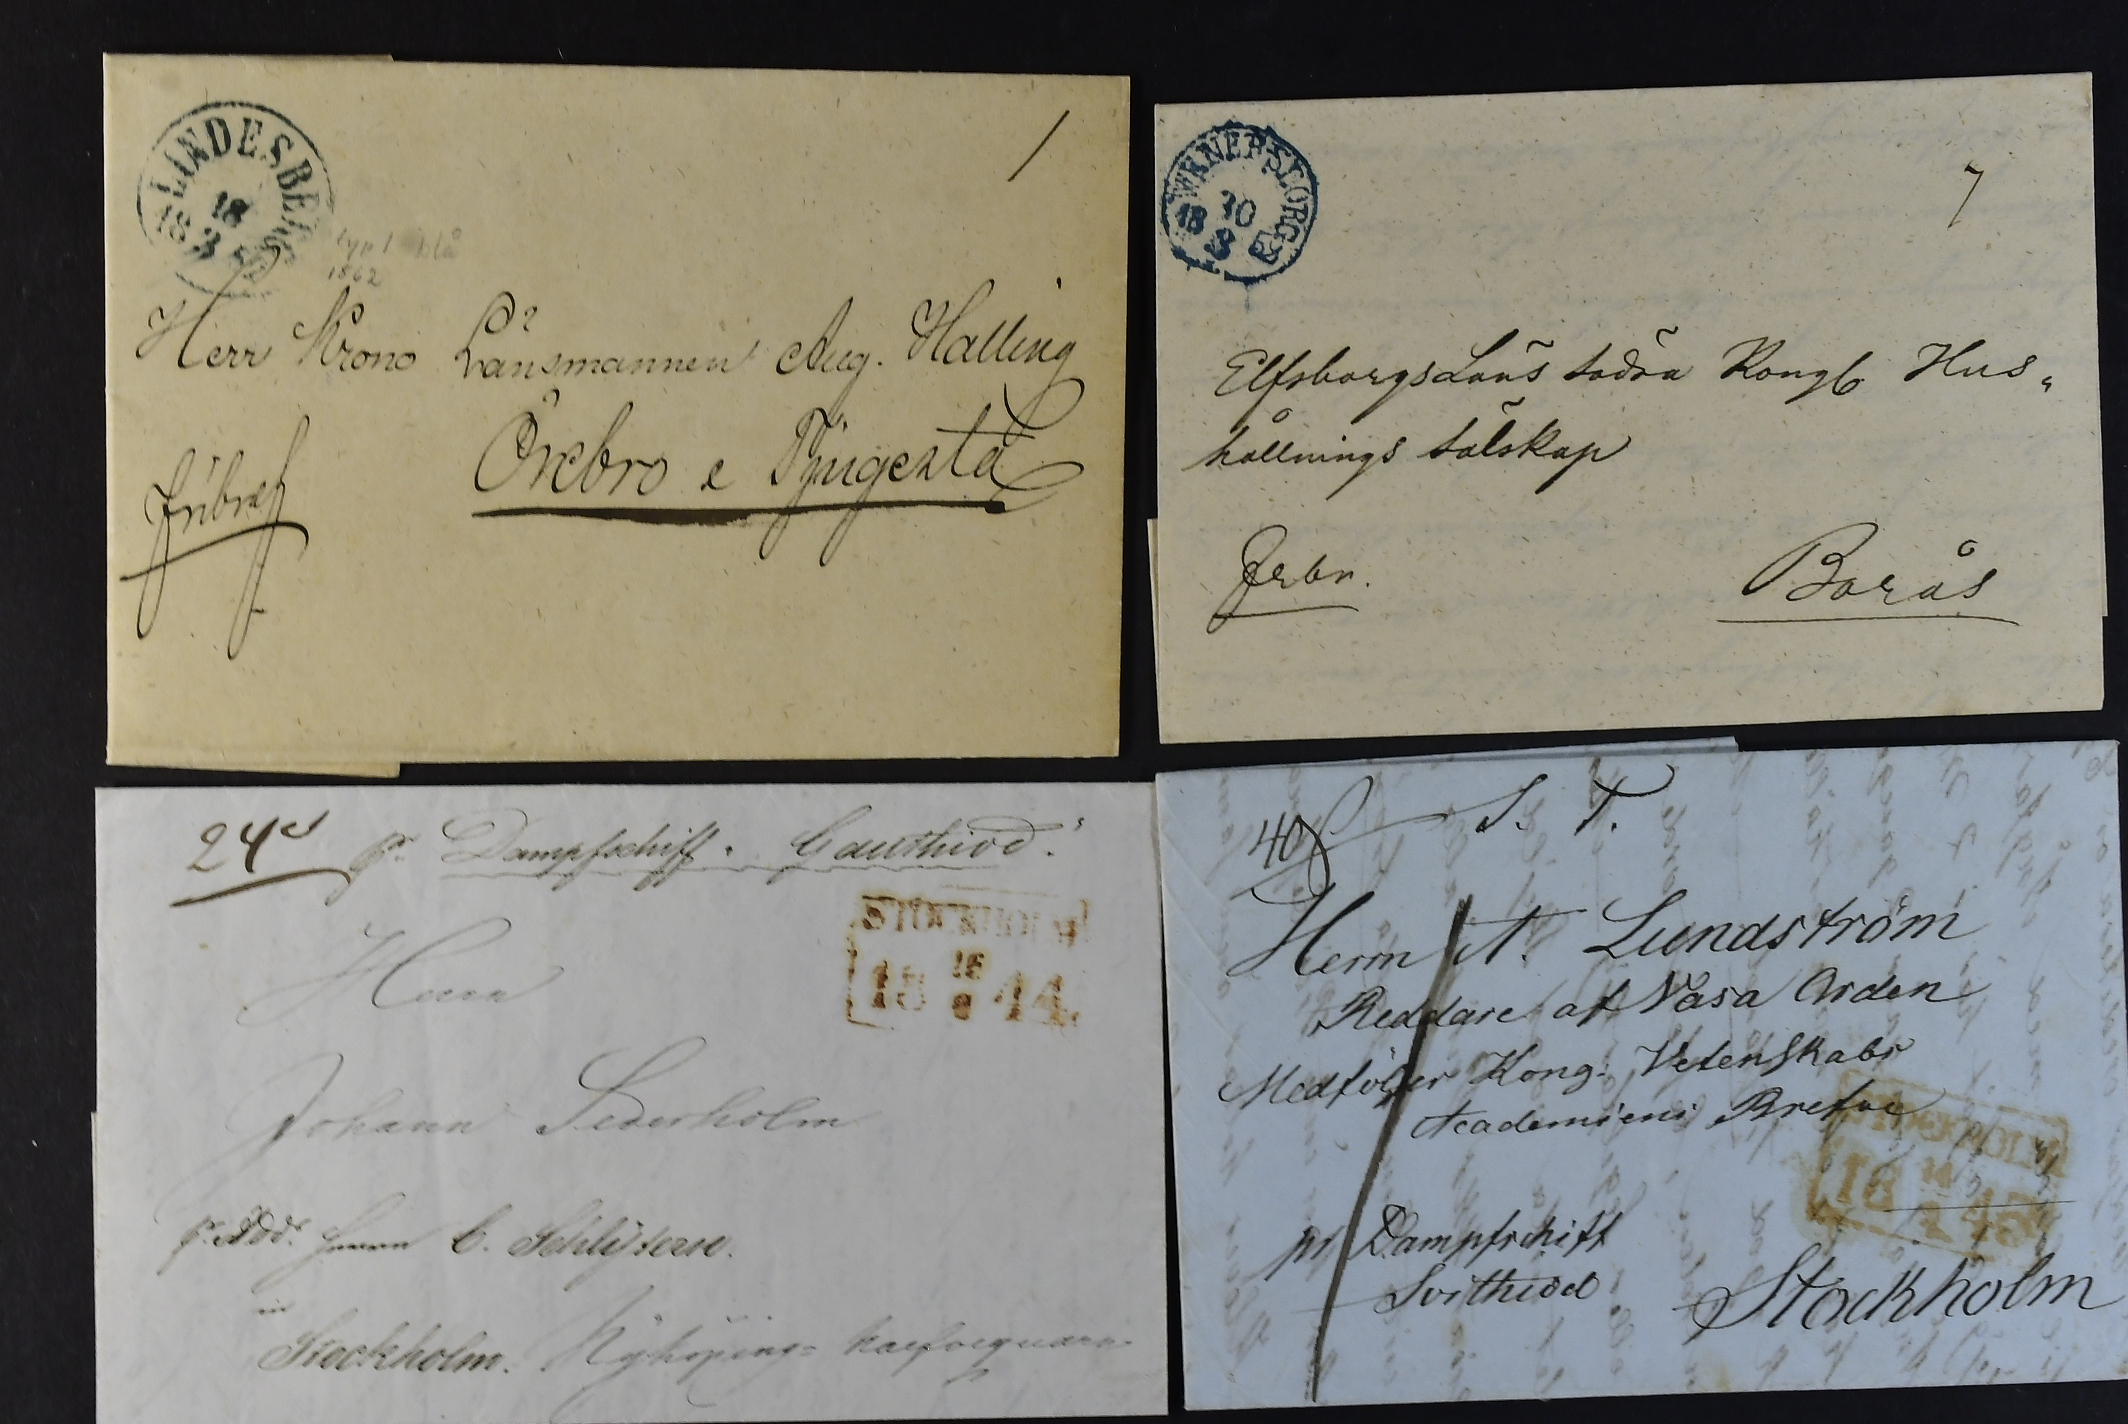 LINDESBERG
18
3
typ 1 blå
1862
Herr Krono Länsmannen Aug. Halling
Örebro e
Fribref
WENERSBORG
10
18
8
7
Elfsborgs Läns södra Kongl Hus„
hållnings sälskap
Frbr.
Borås
24
pr Dampfschiff "Gauthiod"
STOCKHOLM
18
18 44
8
Herrn
Johann Sederholm
pr Add. Herrn C. Schlytern.
in
Stockholm.
40
S. T.
Herrn A. Lundström
Reddare af Wasa Orden
Medföljer Kong: Vetenskabs
Academiens Brefve
18 45
pr Dampfschiff
Svithiod
Stockholm